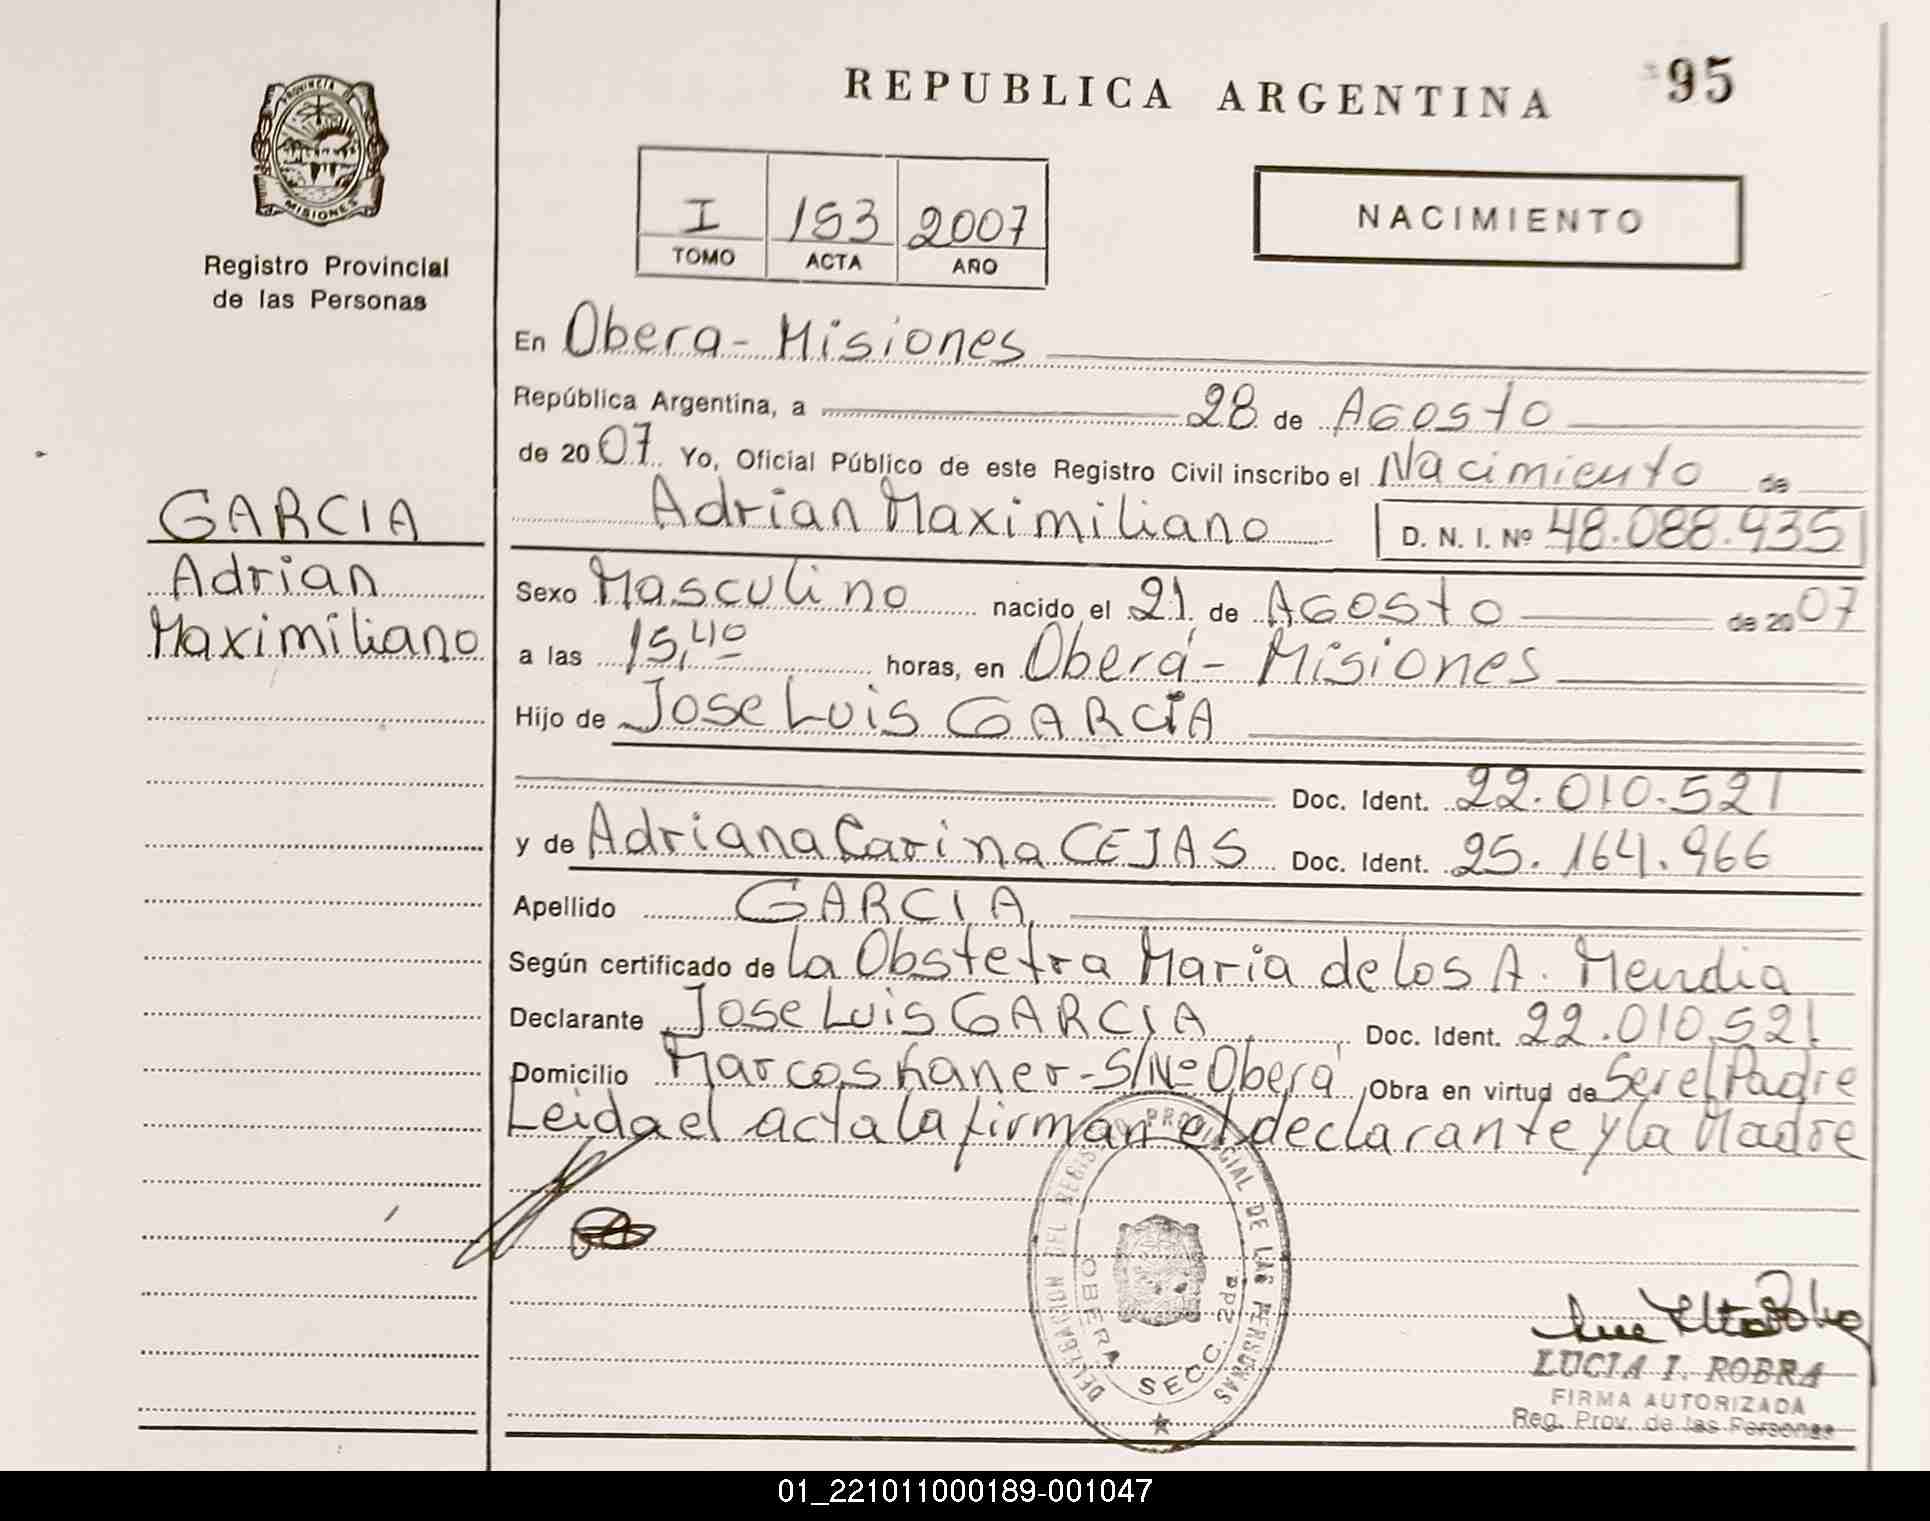 REPUBLICA ARGENTINA 95
PROVINCIA DE
MISIONES
Registro Provincial
de las Personas
I 153 2007
TOMO ACTA AÑO
NACIMIENTO
En Obera - Misiones
República Argentina, a 28 de Agosto
de 2007 Yo, Oficial Público de este Registro Civil inscribo el Nacimiento de
Adrian Maximiliano D. N. I. Nº 48.088.935
GARCIA
Adrian
Maximiliano
Sexo Masculino nacido el 21 de Agosto de 2007
a las 15,40 horas, en Oberá - Misiones
Hijo de Jose Luis GARCIA
Doc. Ident. 22.010.521
y de Adriana Carina CEJAS Doc. Ident. 25.164.966
Apellido GARCIA
Según certificado de la Obstetra Maria de los A. Mendia
Declarante Jose Luis GARCIA Doc. Ident. 22.010.521
Domicilio Marcos Kaner - S/Nº Oberá Obra en virtud de Ser el Padre
Leida el acta la firman el declarante y la Madre
DELEGACION DEL REGISTRO PROVINCIAL DE LAS PERSONAS
OBERA SECC. 2da
LUCIA I. ROBRA
FIRMA AUTORIZADA
Reg. Prov. de las Personas
01_221011000189-001047